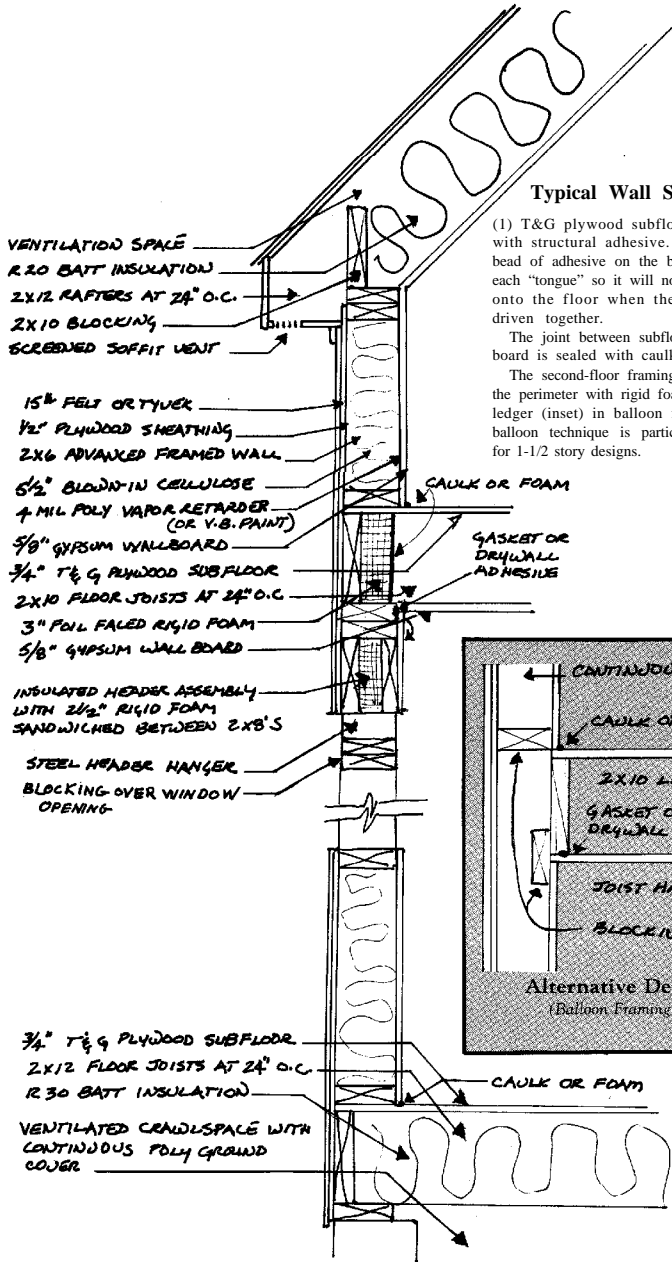 Typical Wall S
(1) T&G plywood subflo
with structural adhesive.
bead of adhesive on the b
each “tongue” so it will no
onto the floor when the
driven together.
The joint between subfle
board is sealed with caulk
The second-floor framing
the perimeter with rigid foa
ledger (inset) in balloon
balloon technique is partic
for 1-1/2 story designs.
VENTILATION SPACE
R20 BATT INSULATION
2X12 RAFTERS AT 24" O.C.
2X10 BLOCKING
SCREENED SOFFIT VENT
15# FELT OR TYVEK
1/2" PLYWOOD SHEATHING
2X6 ADVANCED FRAMED WALL
5 1/2" BLOWN-IN CELLULOSE
4 MIL POLY VAPOR RETARDER
(OR V.B. PAINT)
5/8" GYPSUM WALLBOARD
3/4" T&G PLYWOOD SUBFLOOR
2X10 FLOOR JOISTS AT 24" O.C
3" FOIL FACED RIGID FOAM
5/8" GYPSUM WALL BOARD
CAULK OR FOAM
GASKET OR
DRYWALL
ADHESIVE
INSULATED HEADER ASSEMBLY
WITH 2 1/2" RIGID FOAM
SANDWICHED BETWEEN 2X8'S
STEEL HEADER HANGER
BLOCKING OVER WINDOW
OPENING
CONTINUOU
CAULK O
2X10 L
GASKET O
DRYWALL
JOIST HA
BLOCKIN
Alternative De
(Balloon Framing
3/4" T&G PLYWOOD SUBFLOOR
2X12 FLOOR JOISTS AT 24" O.C.
R30 BATT INSULATION
CAULK OR FOAM
VENTILATED CRAWLSPACE WITH
CONTINUOUS POLY GROUND
COVER